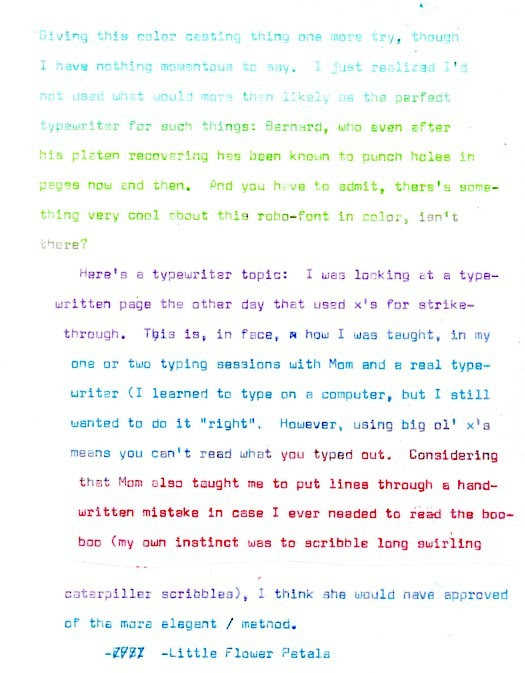 Giving this color casting thing one more try, though
I have nothing momentous to say.  I just realized I'd
not used what would more then likely be the perfect
typewriter for such things: Bernard, who even after
his platen recovering has been known to punch holes in
pages now and then.  And you have to admit, there's some-
thing very cool about this robo-font in color, isn't
there?
Here's a typewriter topic:  I was looking at a type-
written page the other day that used x's for strike-
through.  This is, in face, how I was taught, in my
one or two typing sessions with Mom and a real type-
writer (I learned to type on a computer, but I still
wanted to do it "right".  However, using big ol' x's
means you can't read what you typed out.  Considering
that Mom also taught me to put lines through a hand-
written mistake in case I ever needed to read the boo-
boo (my own instinct was to scribble long swirling
caterpiller scribbles), I think she would have approved
of the more elegant / method.
-Little Flower Petals